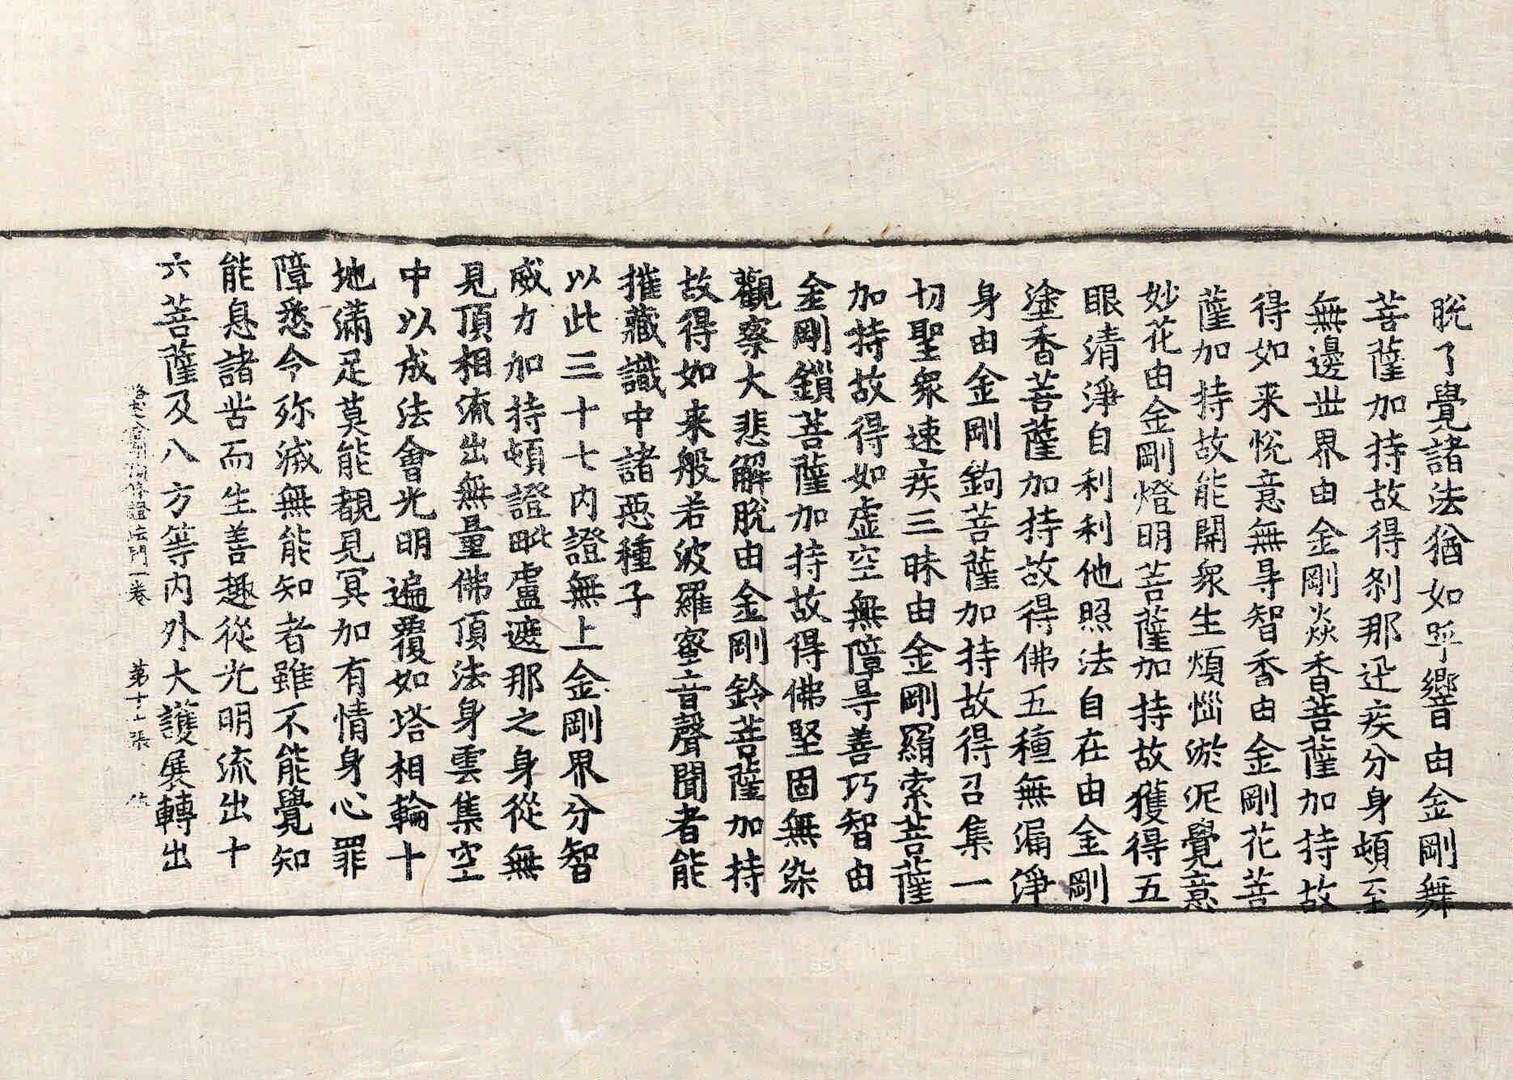 脫了覺諸法猶如呼響由金剛舞
菩薩加持故得剎那迅疾分身頓至
無邊世界由金剛焱香菩薩加持故
得如来悅意無㝵智香由金剛花菩
薩加持故能開衆生煩惱淤泥覺意
妙花由金剛燈明菩薩加持故獲得五
眼清淨自利利他照法自在由金剛
塗香菩薩加持故得佛五種無漏淨
身由金剛鉤菩薩加持故得召集一
切聖衆速疾三昧由金剛羂索菩薩
加持故得如虛空無障㝵善巧智由
金剛鎖菩薩加持故得佛堅固無染
觀察大悲解脫由金剛鈴菩薩加持
故得如来般若波羅蜜音聲聞者能
摧藏識中諸惡種子
以此三十七內證無上金剛界分智
威力加持頓證毗盧遮那之身從無
見頂相流出無量佛頂法身雲集空
中以成法會光明遍覆如塔相輪十
地滿足莫能覩見冥加有情身心罪
障悉令殄滅無能知者雖不能覺知
能息諸苦而生善趣從光明流出十
六菩薩及八方等內外大護展轉出
修證法門一卷 第十二張